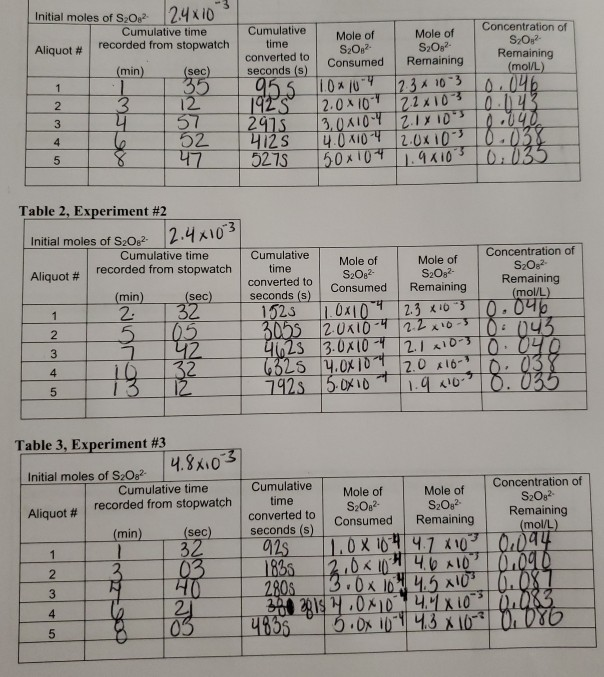 Initial moles of S₂O₈²⁻ 2.4 x 10⁻³
Aliquot # Cumulative time recorded from stopwatch Cumulative time converted to seconds (s) Mole of S₂O₈²⁻ Consumed Mole of S₂O₈²⁻ Remaining Concentration of S₂O₈²⁻ Remaining (mol/L)
(min) (sec)
1 1 35 95s 1.0 x 10⁻⁴ 2.3 x 10⁻³ 0.046
2 3 12 192s 2.0 x 10⁻⁴ 2.2 x 10⁻³ 0.043
3 4 57 297s 3.0 x 10⁻⁴ 2.1 x 10⁻³ 0.040
4 6 52 412s 4.0 x 10⁻⁴ 2.0 x 10⁻³ 0.038
5 8 47 527s 5.0 x 10⁻⁴ 1.9 x 10⁻³ 0.035
Table 2, Experiment #2
Initial moles of S₂O₈²⁻ 2.4 x 10⁻³
Aliquot # Cumulative time recorded from stopwatch Cumulative time converted to seconds (s) Mole of S₂O₈²⁻ Consumed Mole of S₂O₈²⁻ Remaining Concentration of S₂O₈²⁻ Remaining (mol/L)
(min) (sec)
1 2. 32 152s 1.0 x 10⁻⁴ 2.3 x 10⁻³ 0.046
2 5 05 305s 2.0 x 10⁻⁴ 2.2 x 10⁻³ 0.043
3 7 42 462s 3.0 x 10⁻⁴ 2.1 x 10⁻³ 0.040
4 10 32 632s 4.0 x 10⁻⁴ 2.0 x 10⁻³ 0.038
5 13 12 792s 5.0 x 10⁻⁴ 1.9 x 10⁻³ 0.035
Table 3, Experiment #3
Initial moles of S₂O₈²⁻ 4.8 x 10⁻³
Aliquot # Cumulative time recorded from stopwatch Cumulative time converted to seconds (s) Mole of S₂O₈²⁻ Consumed Mole of S₂O₈²⁻ Remaining Concentration of S₂O₈²⁻ Remaining (mol/L)
(min) (sec)
1 1 32 92s 1.0 x 10⁻⁴ 4.7 x 10⁻³ 0.094
2 3 03 183s 2.0 x 10⁻⁴ 4.6 x 10⁻³ 0.090
3 4 40 280s 3.0 x 10⁻⁴ 4.5 x 10⁻³ 0.087
4 6 21 381s 4.0 x 10⁻⁴ 4.4 x 10⁻³ 0.083
5 8 03 483s 5.0 x 10⁻⁴ 4.3 x 10⁻³ 0.086